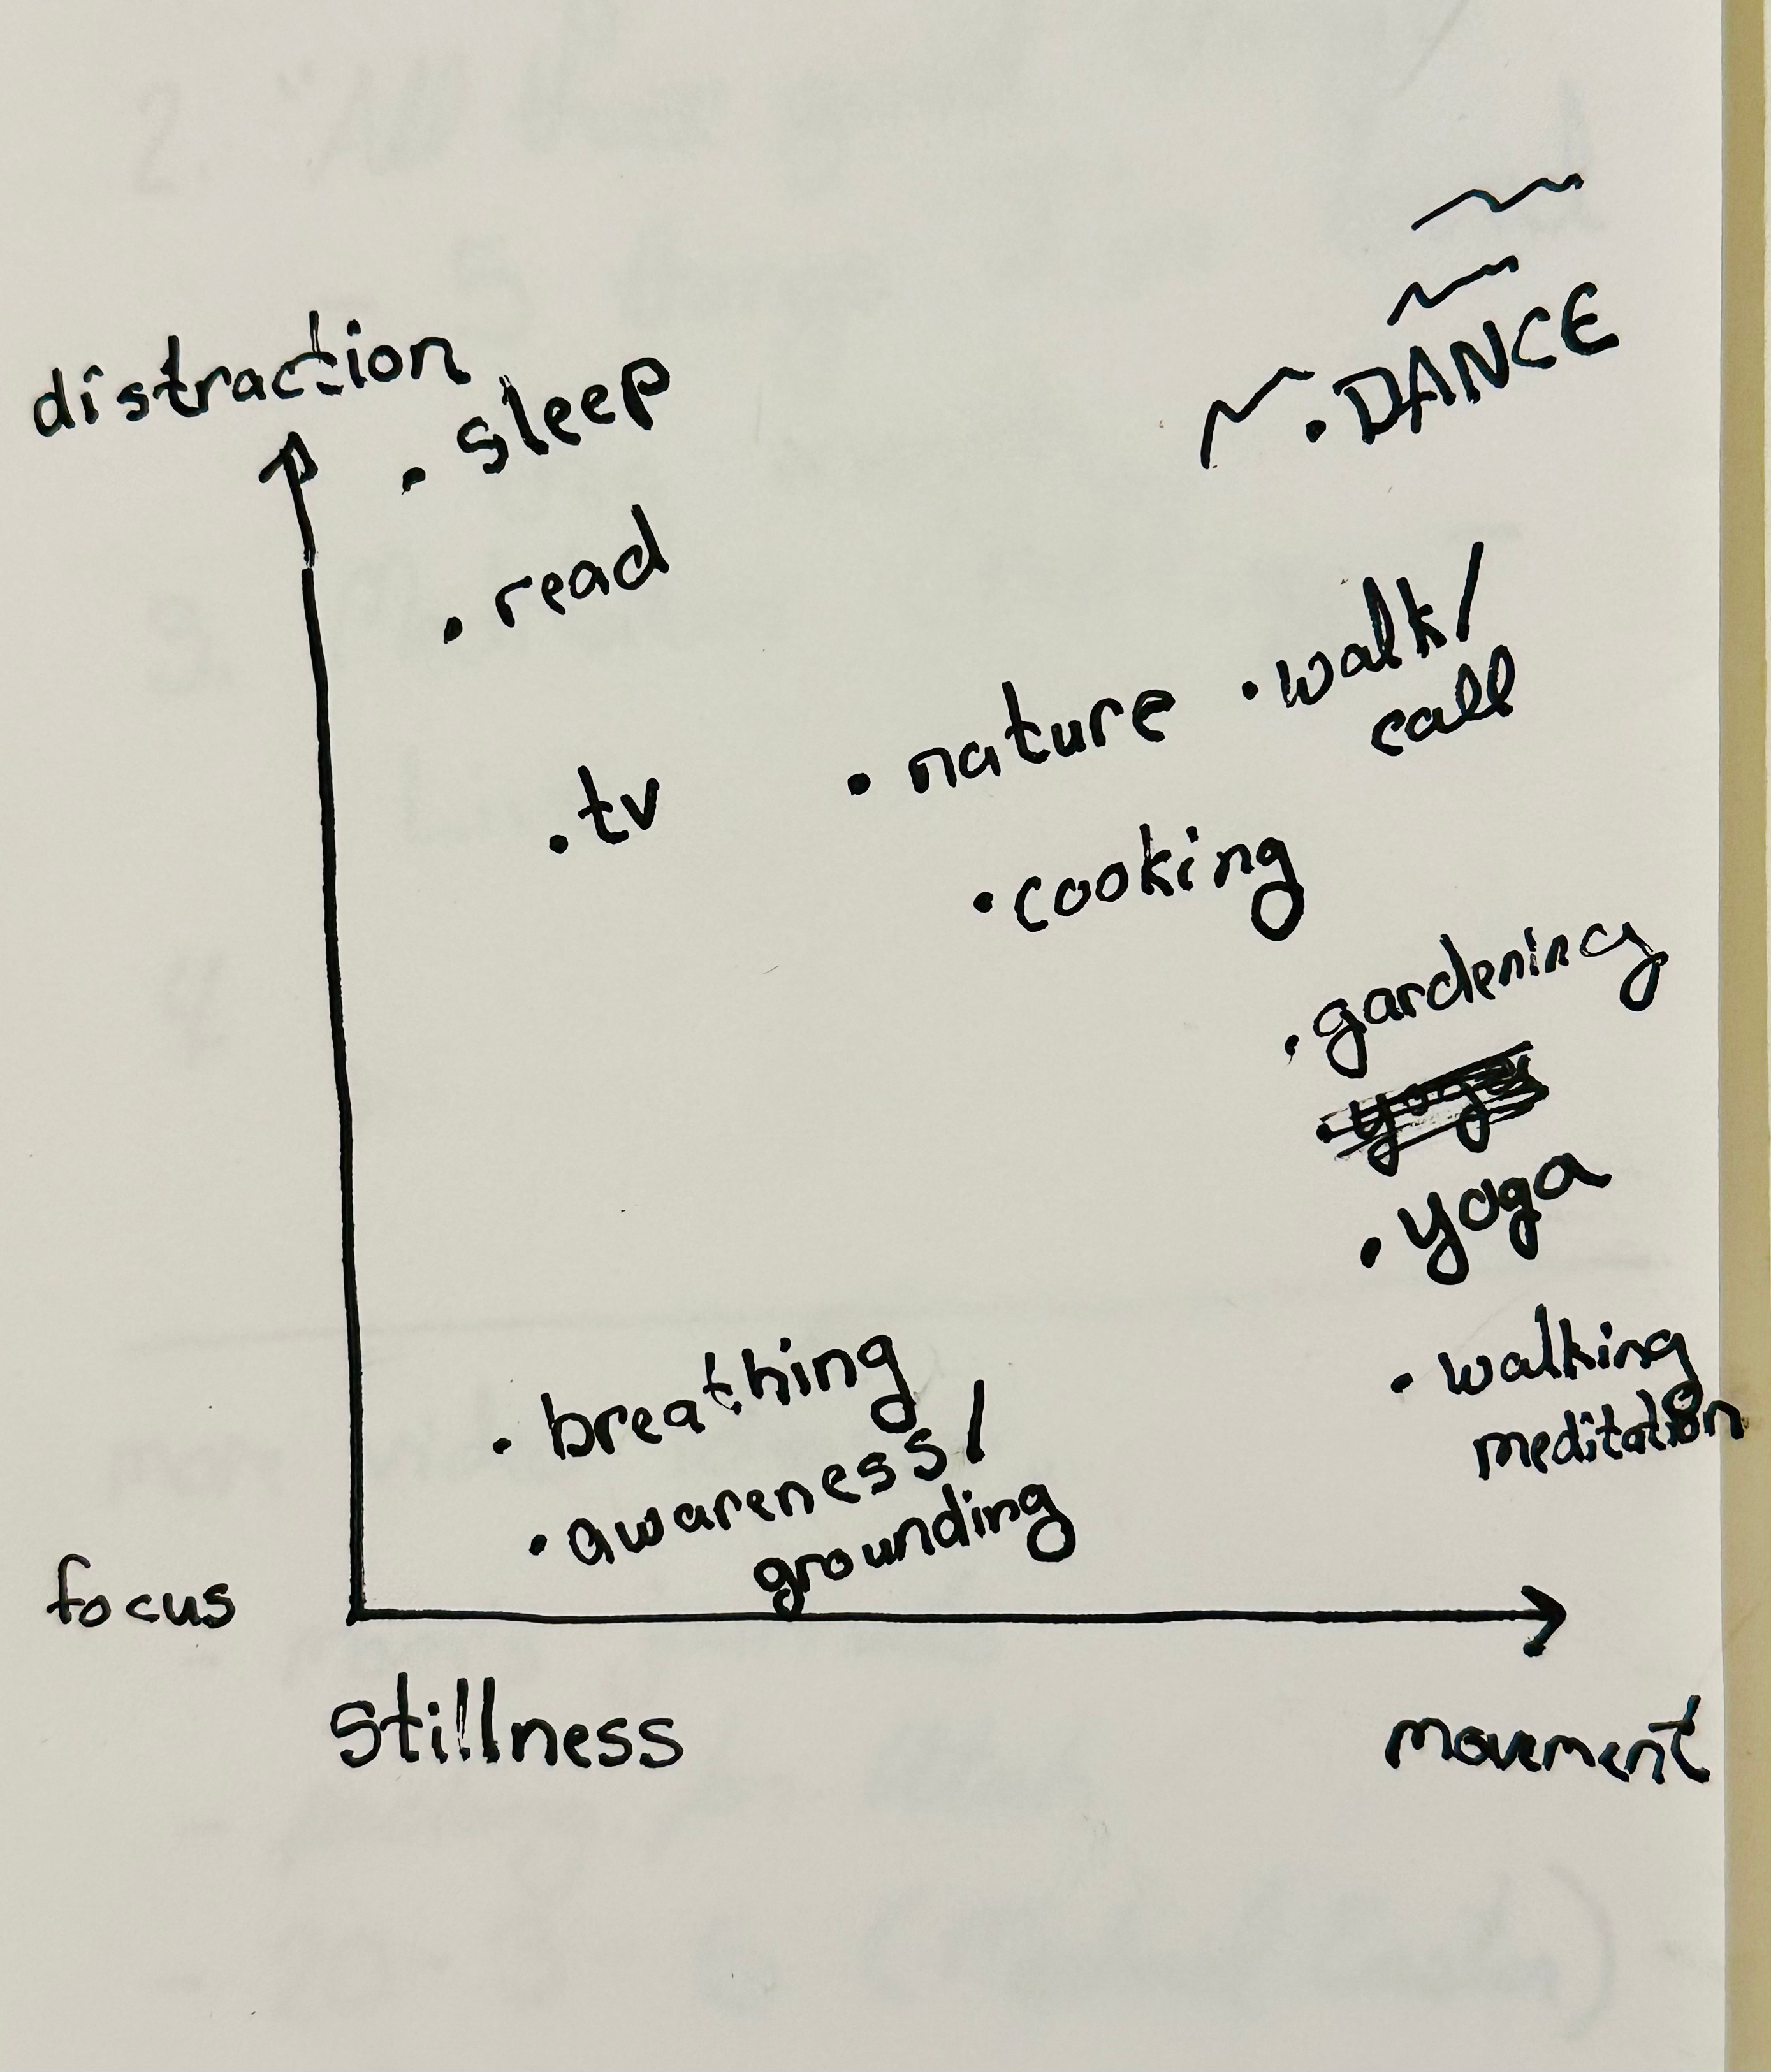 DANCE
distraction
. sleep
. read
. walk/
call
. nature
. tv
. cooking
. gardening
. yoga
. yoga
. walking
meditation
. breathing
. awareness/
grounding
focus
stillness
movement